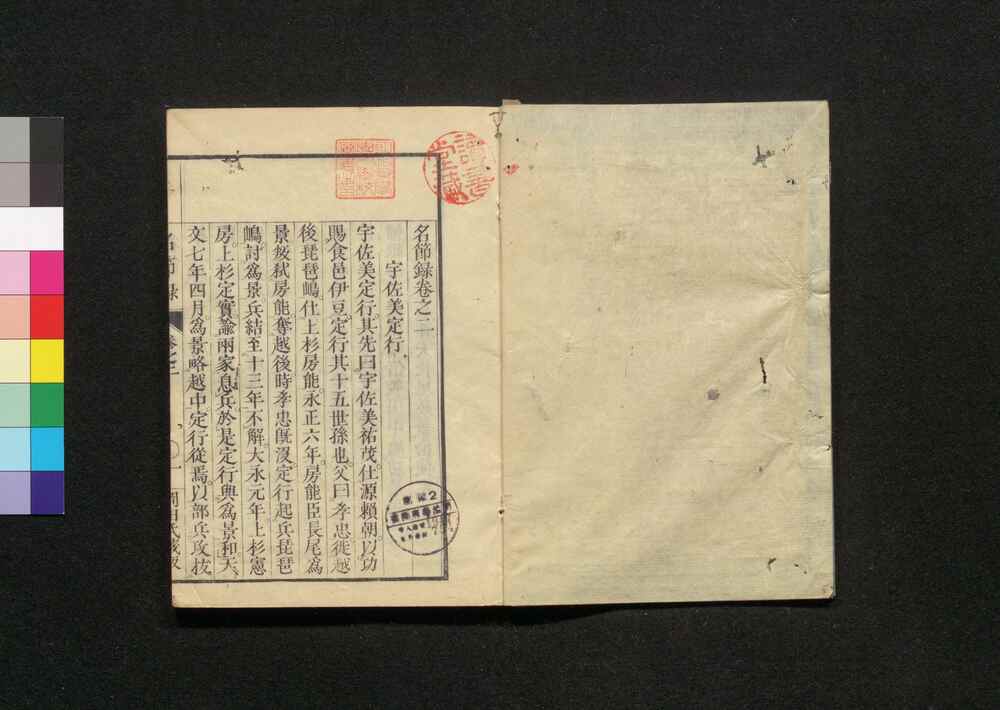 名節録卷之二
宇佐美定行
宇佐美定行其先曰宇佐美祐茂仕源頼朝以功
賜食邑伊豆定行其十五世孫也父曰孝忠徙越
後琵琶嶋仕上杉房能永正六年房能臣長尾爲
景叛弑房能奪越後時孝忠既沒定行起兵琵琶
嶋討爲景兵結至十三年不解大永元年上杉憲
房上杉定實諭兩家息兵於是定行與爲景和天
文七年四月爲景略越中定行從焉以部兵攻拔
名節録
卷之二